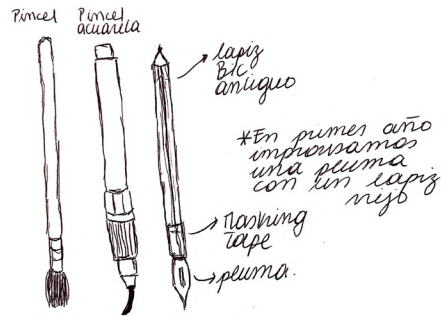 Pincel
Pincel
acuarela
lapiz
BIC
antiguo
*En primer año
improvisamos
una pluma
con un lapiz
viejo
Masking
tape
pluma.